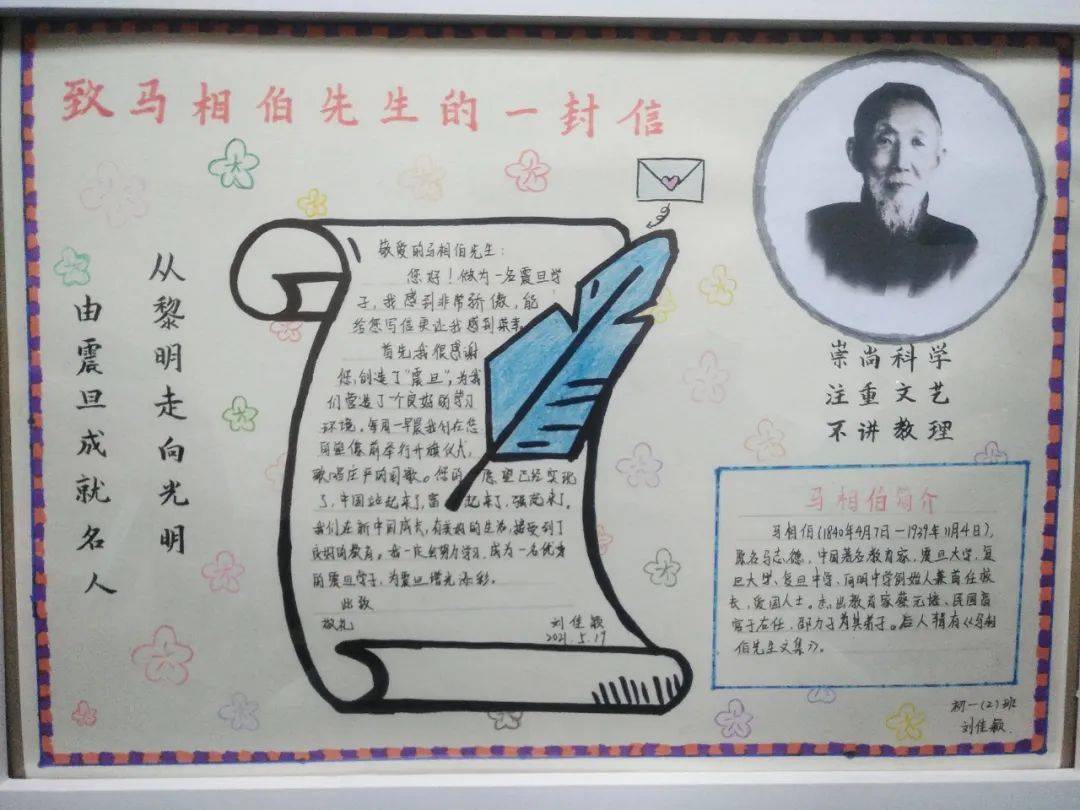 致马相伯先生的一封信
从黎明走向光明
由震旦成就名人
敬爱的马相伯先生：
您好！做为一名震旦学
子，我感到非常骄傲，能
给您写信更让我感到荣幸。
首先我很感谢
您，创造了“震旦”，为我
们营造了一个良好的学习
环境。每周一早晨我们在您
的塑像前举行开旗仪式，
歌唱庄严的国歌。您的愿望已经实现
了，中国站起来了，富起来了，强起来了。
我们在新中国成长，有美好的生活，接受到了
良好的教育。我一定会努力学习，成为一名优秀
的震旦学子，为震旦增光添彩。
此致
敬礼 刘佳
2021.5.17
崇尚科学
注重文艺
不讲教理
马相伯简介
马相伯(1840年4月7日—1939年11月4日)，
原名马志德，中国著名教育家，震旦大学、复
旦大学、复旦中学、向明中学创始人兼首任校
长，爱国人士。杰出教育家蔡元培、民国高
官于右任、邵力子为其弟子。后人辑有《马相
伯先生文集》。
初一(2)班
刘佳敏